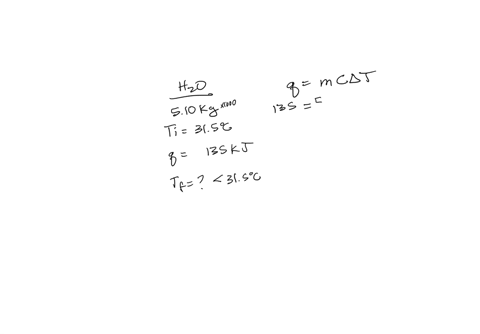 H₂O
5.10 Kg ×1000
Ti = 31.5℃
q = 135 KJ
Tf = ? < 31.5℃
q = m C Δ T
135 = 5